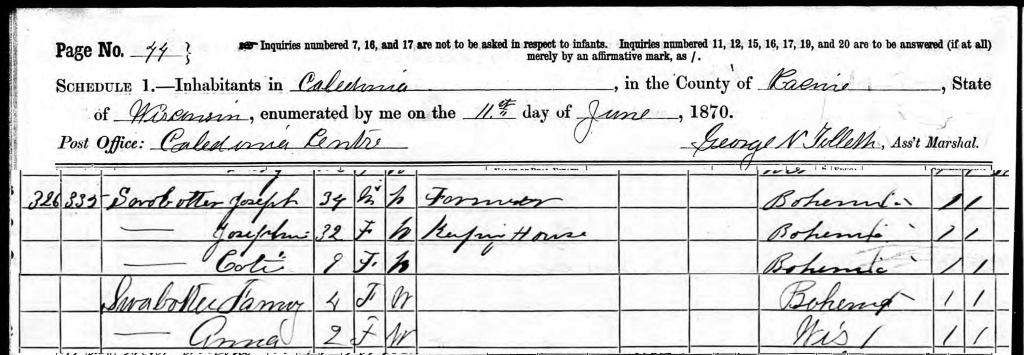 Page No. 44 }
Inquiries numbered 7, 16, and 17 are not to be asked in respect to infants. Inquiries numbered 11, 12, 15, 16, 17, 19, and 20 are to be answered (if at all)
merely by an affirmative mark, as /.
SCHEDULE 1.—Inhabitants in Caledonia, in the County of Racine, State
of Wisconsin, enumerated by me on the 11th day of June, 1870.
Post Office: Caledonia Centre George N, Ass't Marshal.
326 335 Joseph 34 M W Farmer Bohemia 1 1
— Josephine 32 F W Keeping House Bohemia 1 1
— 9 F W Bohemia 1 1
Swabotter 4 F W Bohemia 1 1
— Anna 2 F W Wis / 1 1